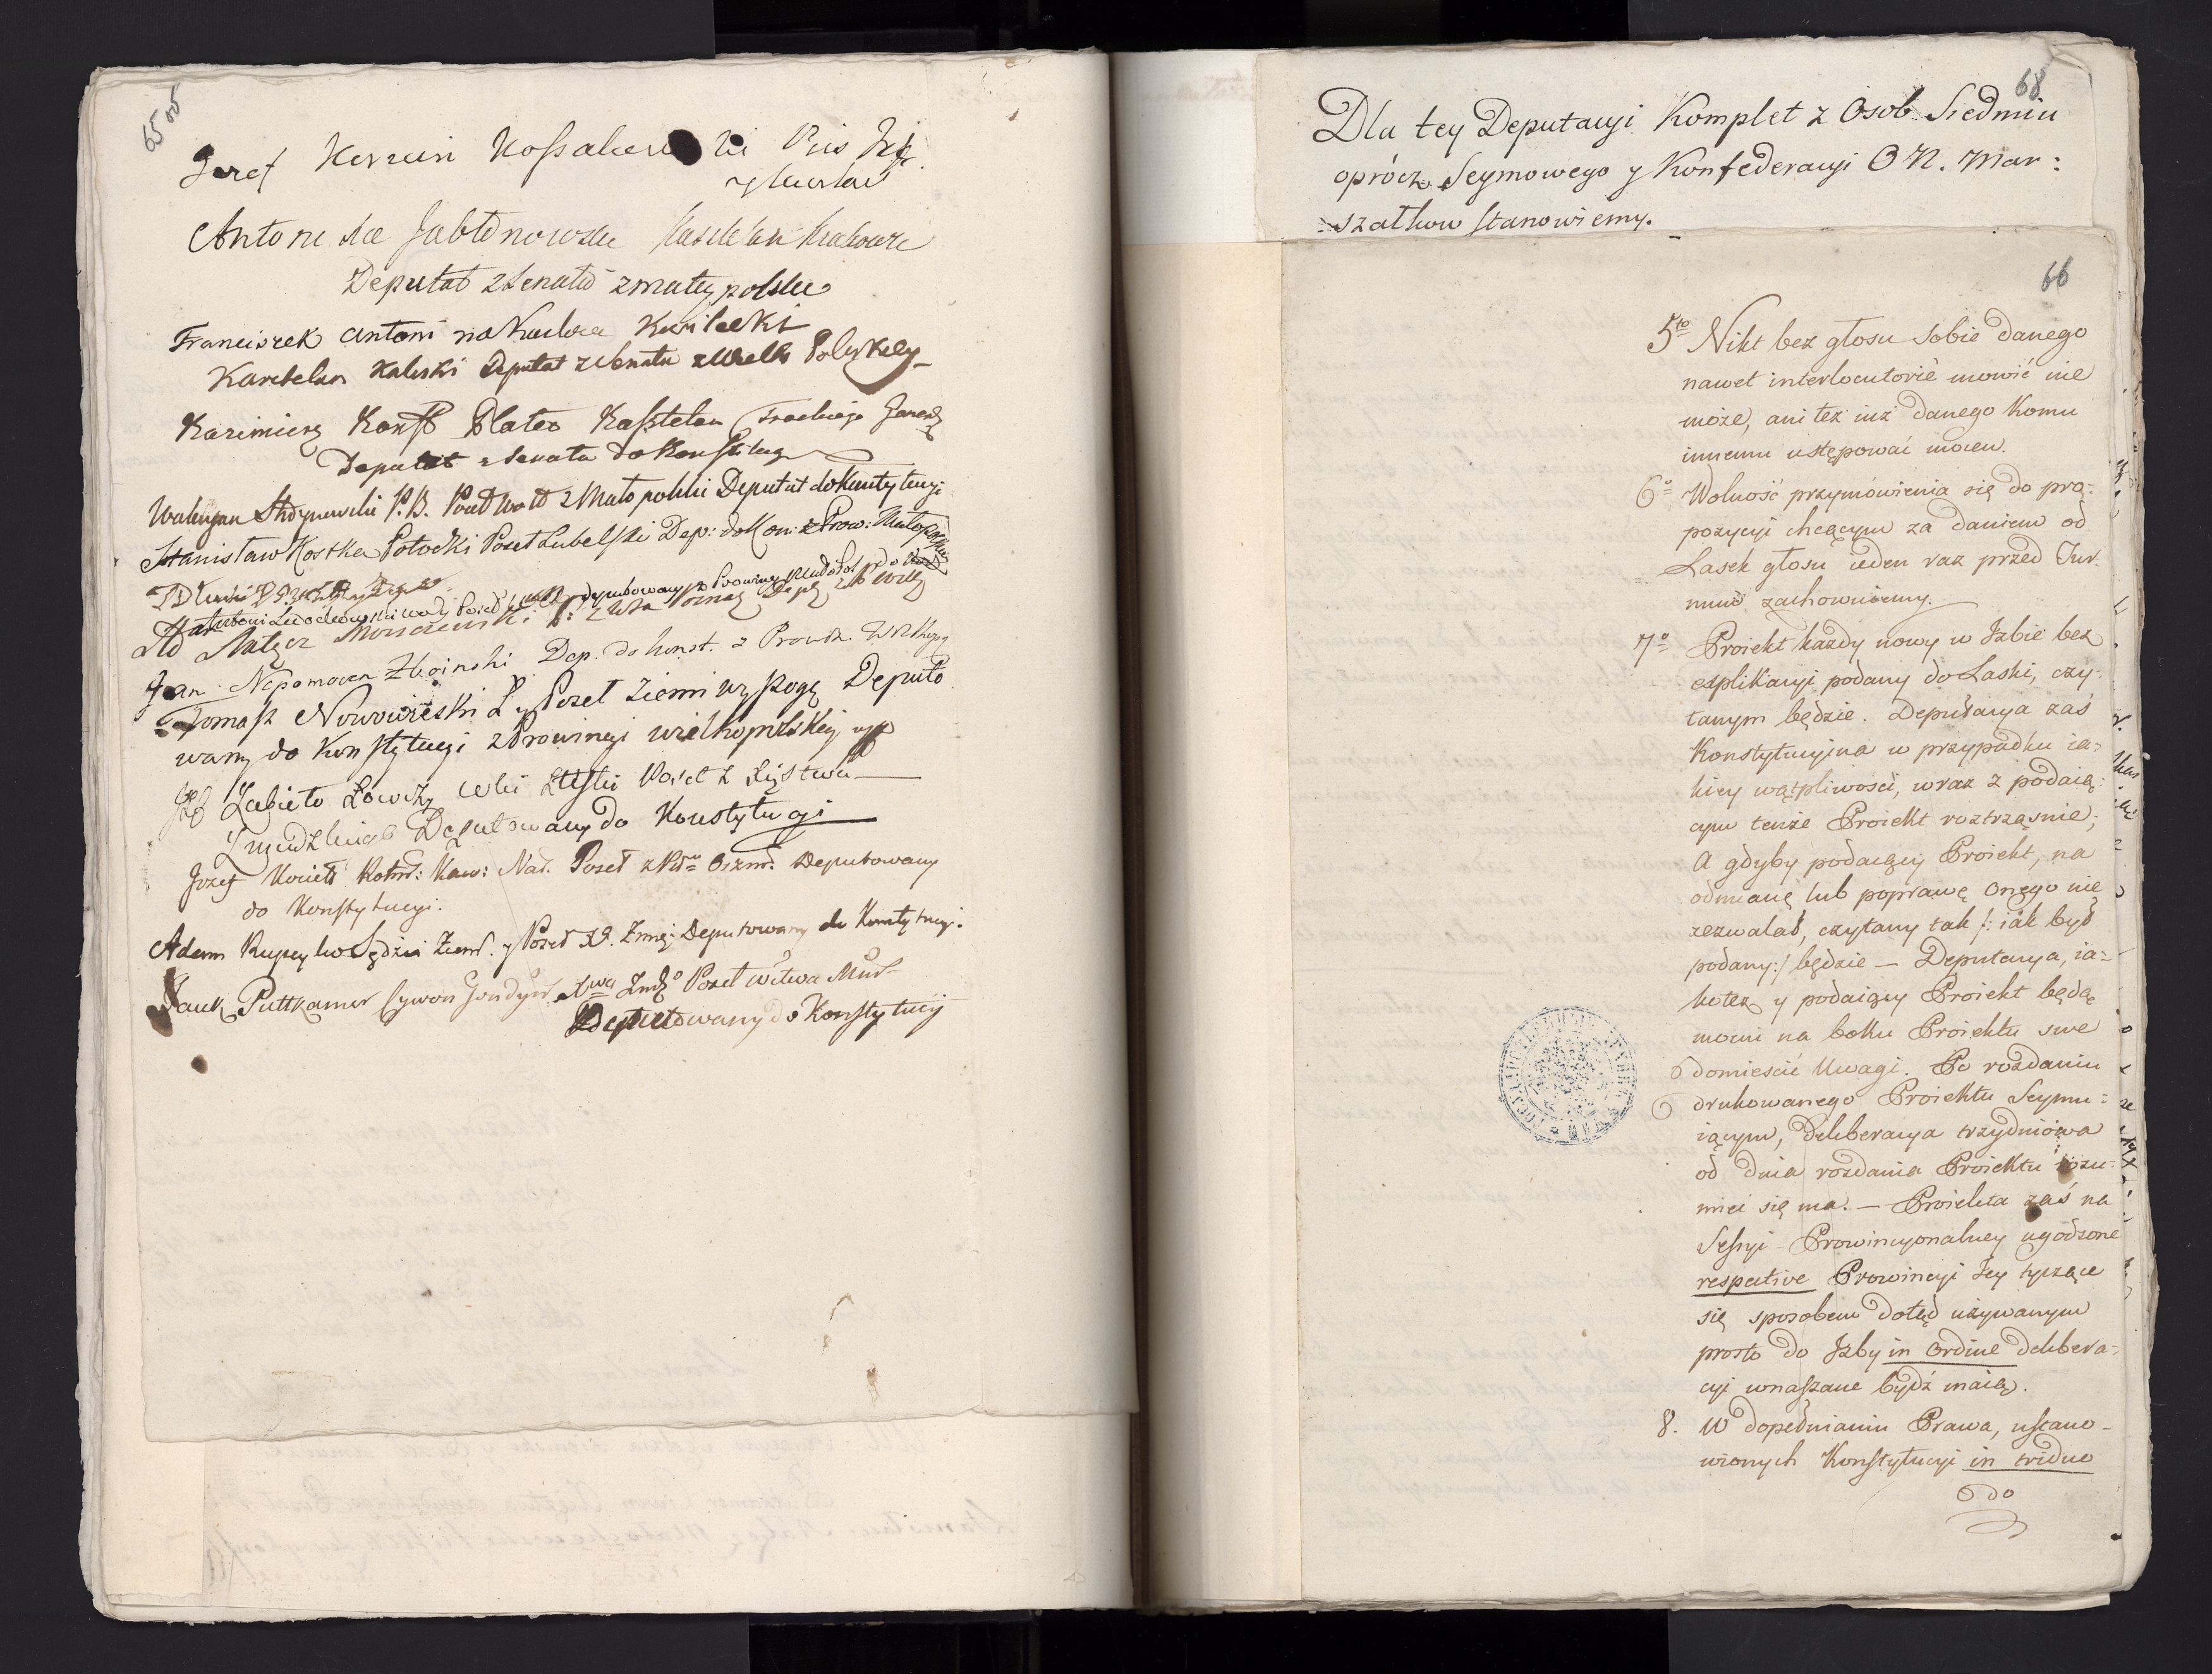 65
Jozef Korwin Kossakowski Bis Infl
y Kurlan
Antoni Xże Jabłonowski Kasztelan Krakows
Deputat z Senatu z małey polski
Franciszek Antoni na Kwilczu Kwilecki
Kasztelan Kaliski Deputat z Senatu z Wielko Polskiey
Kazimierz Konst Plater Kasztelan Trockiego
Deputat z Senatu do Konstytucy
Waleryan Stroynowski P. B. Poseł Woł z Małopolski Deputat do Konstytucyi
Stanisław Kostka Potocki Poseł Lubelski Dep: do Kon: z Prow: Małopolskiey
Antoni Ledochowski Poseł deputowany z Prowincyi Małopol do
Nałęcz Moszczenski P. z Wdz Pozna Dep z P Wlk
Jan Nepomocen Zboinski Dep. do Konst. z Prowin. Wlkpg
Tomasz Nowowieski Ł y Poseł Ziemi Wyszogr Deputo
wany do Konstytucyi z Prowincyi wielkopolskiey
Jozef Zabiełło Łowczy Wki Littski Poseł z Xięstwa
Zmudzkiego Deputowany do Konstytucyi
Jozef Kociełł Rotm: Kaw: Nar. Poseł z Pttu Oszm. Deputowany
do Konstytucyi.
Adam Rupeyko Sędzia Ziems. y Poseł XŻ. Zmeg: Deputowany do Konstytucyi.
Jauk. Puttkamer Cywon Gondyn. Xtwa Zmdzo Poseł Wtwa Mins
Deputowany do Konstytucij
68
Dla tey Deputacyi Komplet z Osob Siedmiu
oprócz Seymowego y Konfederacyi O N. Mar:
:szałkow stanowiemy.
66
5to Nikt bez głosu sobie danego
nawet interlocutoriè mowić nie
może, ani też iuż danego komu
innemu ustępować mocen.
6o Wolność przymówienia się do pro:
pozycyi chcącym za daniem od
Lasek głosu ieden raz przed Tur:
num zachowuiemy.
7o Proiekt każdy nowy w Izbie bez
explikacyi podany do Laski, czy:
tanym będzie. Deputacya zaś
Konstytucyina w przypadku ia:
kiey wątpliwości, wraz z podaią:
cym tenże Proiekt roztrząsnie;
A gdyby podaiący Proiekt, na
odmianę lub poprawę onego nie
zezwalał, czytany tak /: iak był
podany:/ będzie — Deputacya, ia=
kotez y podaiący Proiekt będą
mocni na boku Proiektu swe
domieścić Uwagi. Po rozdaniu
drukowanego Proiektu Seymu:
iącym, deliberacya trzydniowa
od dnia rozdania Proiektu rozu:
mieć się ma. — Proiekta zaś na
Sessyi Prowincyonalney ugodzone
respective Prowincyi Jey tyczące
się sposobem dotąd używanym
prosto do Izby in ordine delibera=
cyi wnaszane bydź maią.
8. W dopełnianiu Prawa, ustano-
wionych Konstytucyi in triduo
do